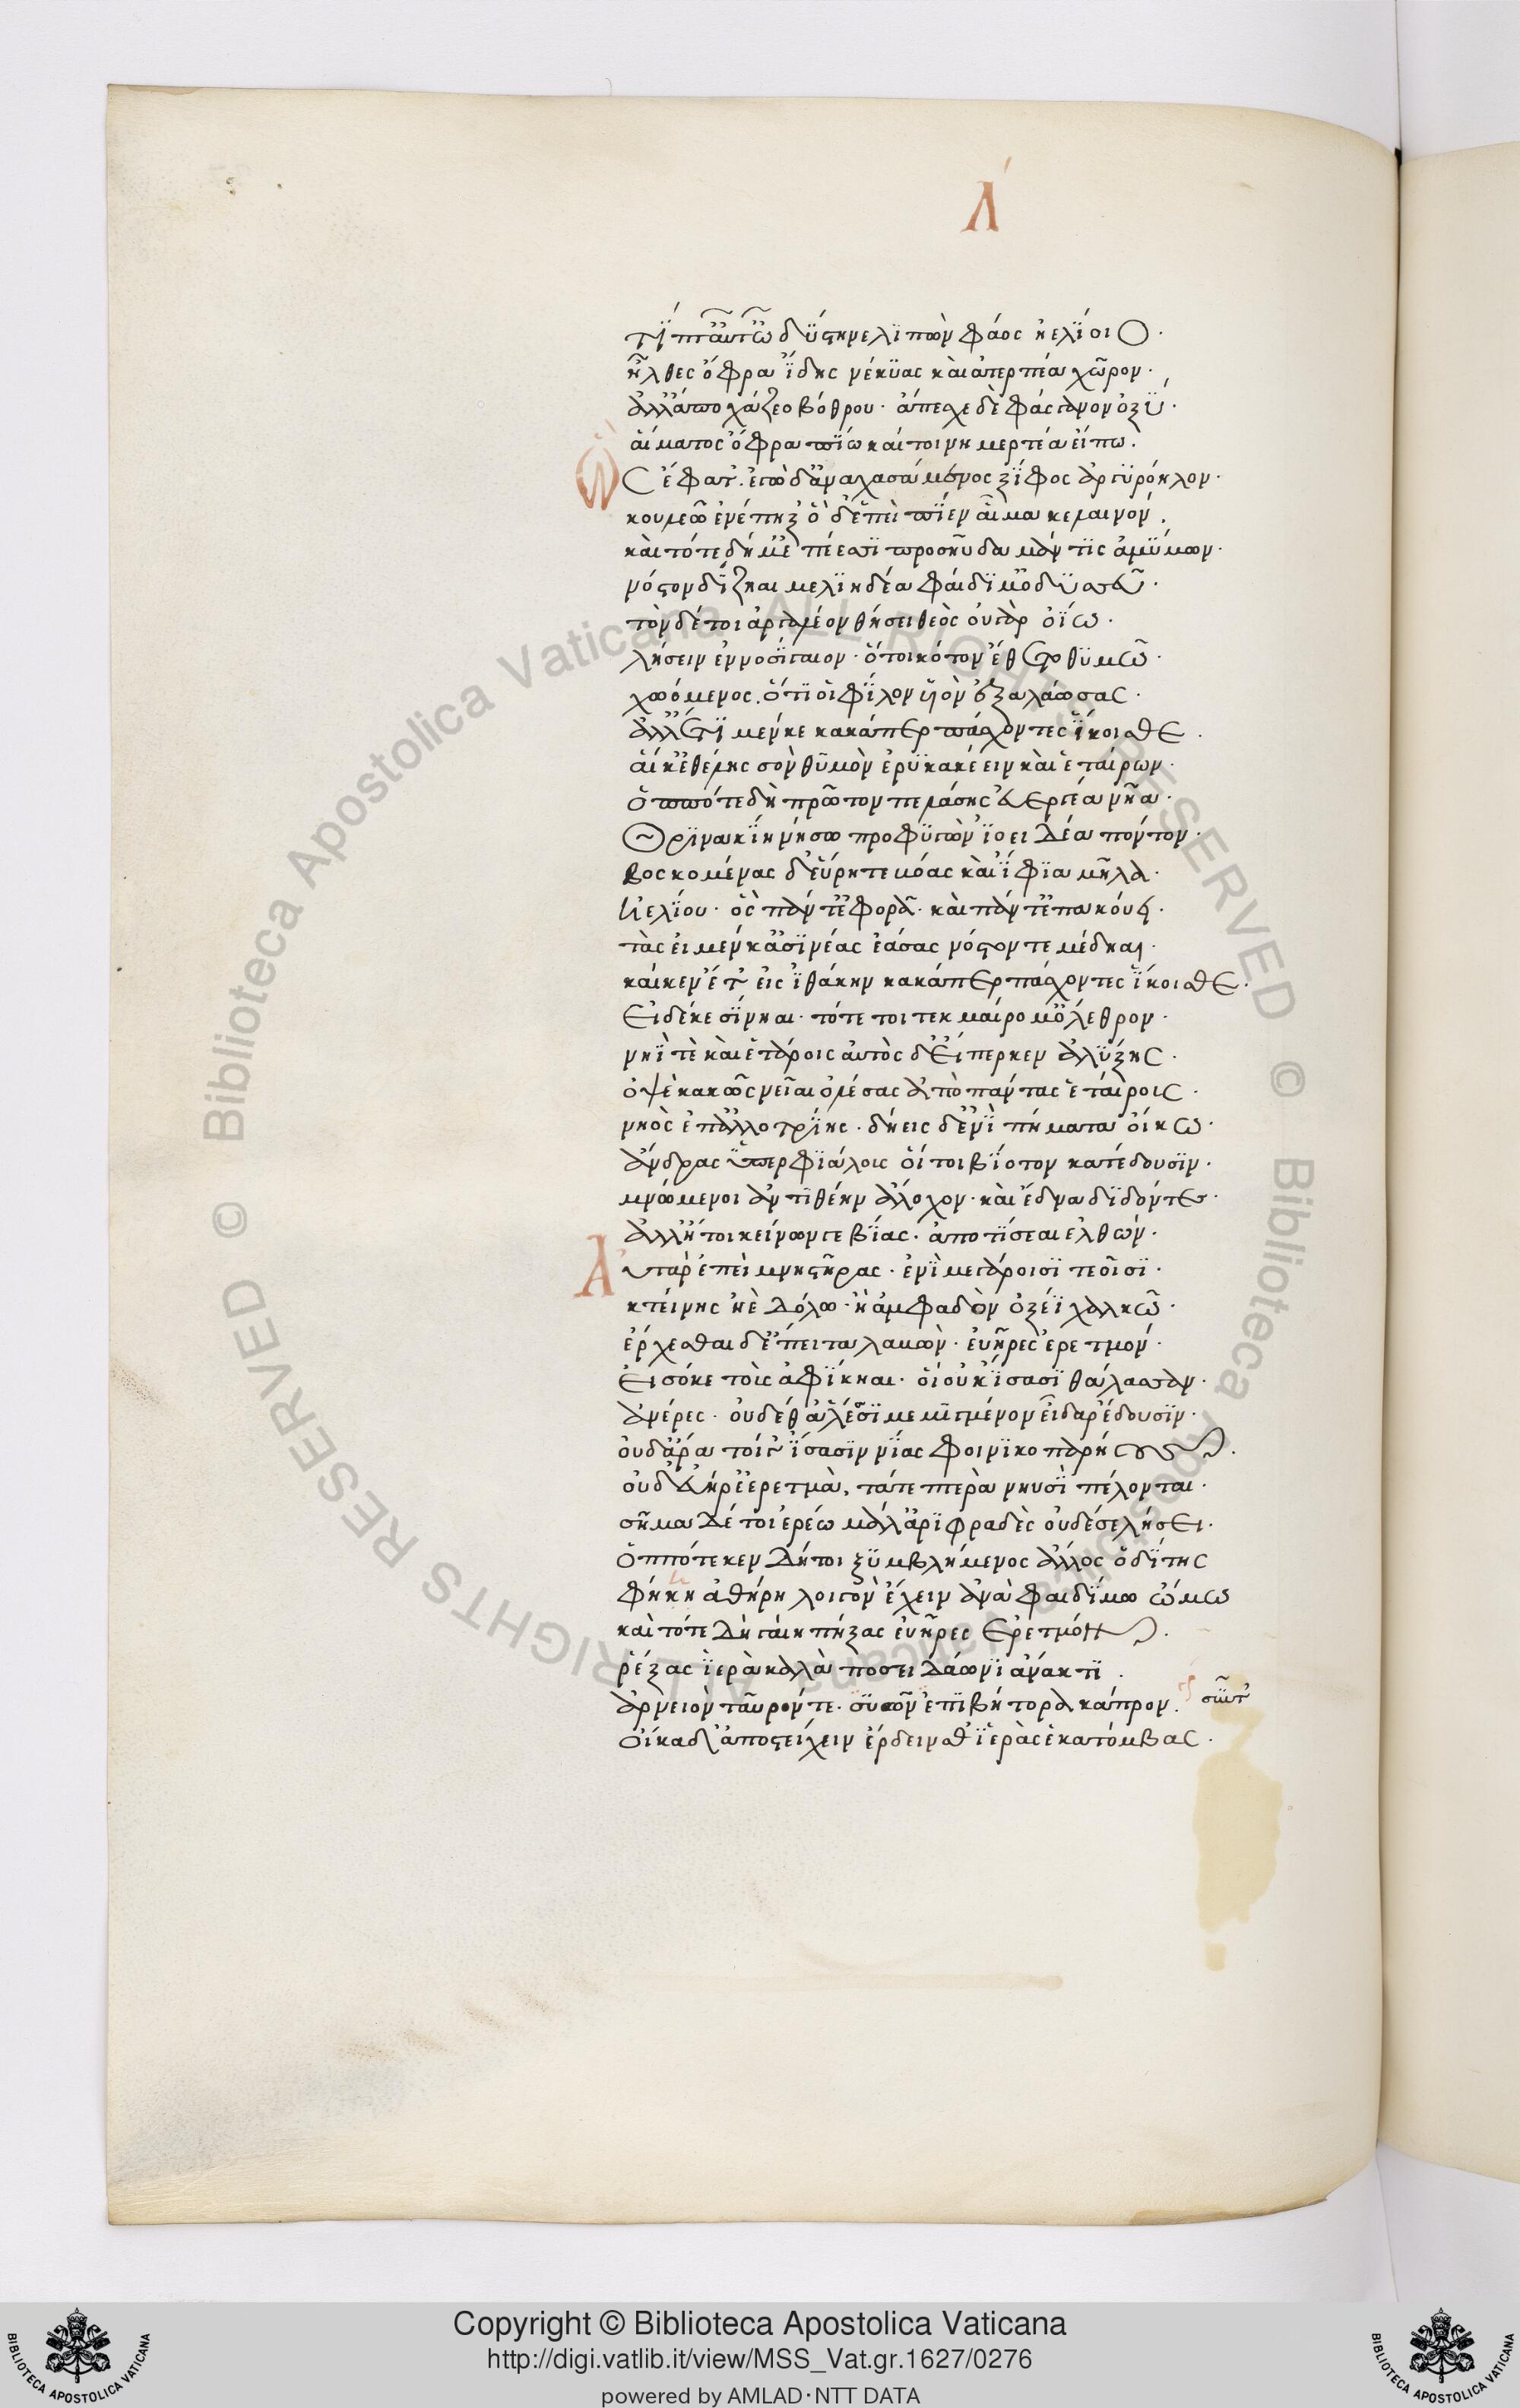 Λ
τί πταῦτ ὦ δύστηνε λιπὼν φάος ἠελίοιο·
ἦλθες ὄφρα ἴδῃς νέκυας καὶ ἀτερπέα χῶρον·
ἀλλ ἀποχάζεο βόθρου· ἄπεχε δὲ φάσγανον ὀξύ·
αἵματος ὄφρα πίω καί τοι νημερτέα εἴπω.
Ὣς ἔφατ. ἐγὼ δ ἀναχασάμενος ξίφος ἀργυρόηλον·
κουλεῷ ἐγκατέπηξ ὁ δ ἐπεὶ πίεν αἷμα κελαινόν.
καὶ τότε δή μ ἐπέεσσι προσηύδα μάντις ἀμύμων·
νόστον δίζηαι μελιηδέα φαίδιμ ὀδυσσεῦ·
τὸν δέ τοι ἀργαλέον θήσει θεὸς οὐ γὰρ ὀΐω·
λήσειν ἐννοσίγαιον· ὅ τοι κότον ἔνθετο θυμῷ·
χωόμενος. ὅτι οἱ φίλον υἱὸν ἐξαλάωσας·
ἀλλ ἔτι μέν κε κακά περ πάσχοντες ἵκοισθε.
αἴ κ ἐθέλῃς σὸν θυμὸν ἐρυκακέειν καὶ ἑταίρων·
ὁππότε δὴ πρῶτον πελάσῃς εὐεργέα νῆα·
Θρινακίῃ νήσῳ προφυγὼν ἰοειδέα πόντον·
βοσκομένας δ εὕρητε βόας καὶ ἴφια μῆλα·
ἠελίου· ὃς πάντ ἐφορᾷ· καὶ πάντ ἐπακούει·
τὰς εἰ μέν κ ἀσινέας ἐάσας νόστον τε μέδηαι·
καί κεν ἔτ εἰς ἰθάκην κακά περ πάσχοντες ἵκοισθε·
Εἰ δέ κε σίνηαι· τότε τοι τεκμαίρομ ὄλεθρον·
νηΐ τε καὶ ἑτάροις αὐτὸς δ εἴπερ κεν ἀλύξῃς·
ὀψὲ κακῶς νεῖαι ὀλέσας ἄπο πάντας ἑταίροις·
νηὸς ἐπ ἀλλοτρίης· δήεις δ ἐνὶ πήματα οἴκῳ·
ἄνδρας ὑπερφιάλοις οἵ τοι βίοτον κατέδουσιν·
μνώμενοι ἀντιθέην ἄλοχον· καὶ ἕδνα διδόντες·
ἀλλ ἤτοι κείνων γε βίας· ἀποτίσεαι ἐλθών·
Αὐτὰρ ἐπεὶ μνηστῆρας· ἐνὶ μεγάροισι τεοῖσι·
κτείνῃς ἠὲ δόλῳ· ἢ ἀμφαδὸν ὀξέϊ χαλκῷ·
ἔρχεσθαι δ ἔπειτα λαβὼν· εὐῆρες ἐρετμόν·
Εἰσόκε τοὺς ἀφίκηαι· οἳ οὐκ ἴσασι θάλασσαν·
ἀνέρες· οὐδέ θ ἅλεσσι μεμιγμένον εἶδαρ ἔδουσιν·
οὐδ ἄρα τοίγ ἴσασιν νῆας φοινικοπαρήους.
οὐδ εὐήρε ἐρετμὰ, τά τε πτερὰ νηυσὶ πέλονται·
σῆμα δέ τοι ἐρέω μάλ ἀριφραδὲς οὐδέ σε λήσει·
ὁππότε κεν δή τοι ξυμβλήμενος ἄλλος ὁδίτης
φήῃ ἀθηρηλοιγὸν ἔχειν ἀνὰ φαιδίμῳ ὤμῳ
καὶ τότε δὴ γαίῃ πήξας εὐῆρες ἐρετμόν.
ῥέξας ἱερὰ καλὰ ποσειδάωνι ἄνακτι.
ἀρνειὸν ταῦρόν τε· συῶν ἐπιβήτορα κάπρον.
οἴκαδ ἀποστείχειν ἔρδειν θ ἱερὰς ἑκατόμβας·
Copyright © Biblioteca Apostolica Vaticana
http://digi.vatlib.it/view/MSS_Vat.gr.1627/0276
powered by AMLAD·NTT DATA